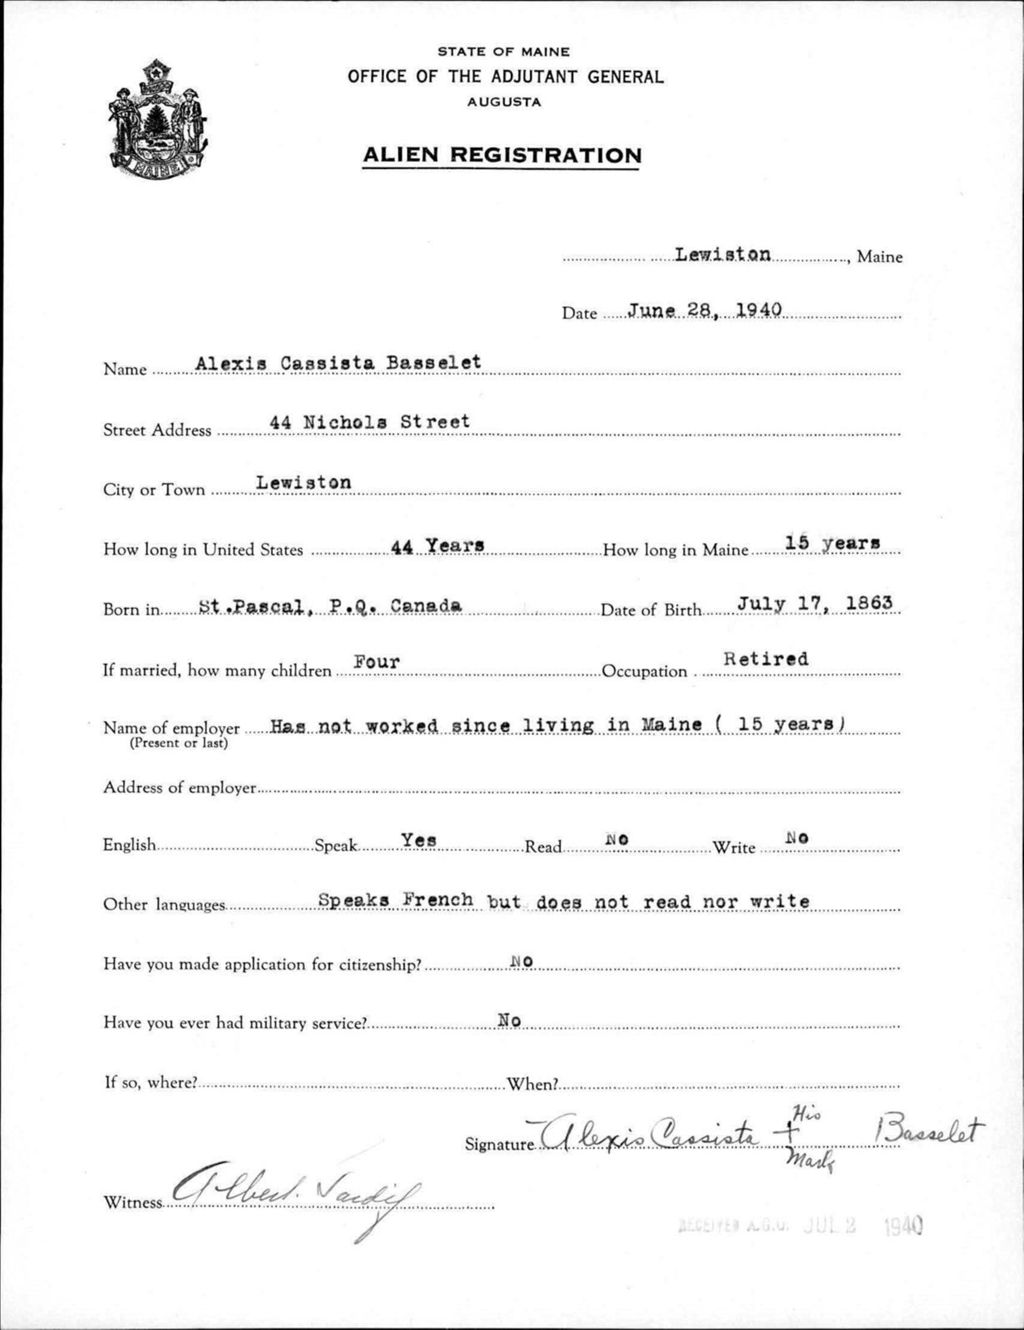 STATE OF MAINE
OFFICE OF THE ADJUTANT GENERAL
AUGUSTA
ALIEN REGISTRATION
MAINE
Lewiston, Maine
Date June 28, 1940
Name Alexis Cassista Basselet
Street Address 44 Nichols Street
City or Town Lewiston
How long in United States 44 Years How long in Maine 15 years
Born in St.Pascal, P.Q. Canada Date of Birth July 17, 1863
If married, how many children Four Occupation Retired
Name of employer Has not worked since living in Maine ( 15 years)
(Present or last)
Address of employer
English Speak Yes Read No Write No
Other languages Speaks French but does not read nor write
Have you made application for citizenship? No
Have you ever had military service? No
If so, where? When?
His
Signature Alexis Cassista + Basselet
Mark
Witness Albert Tardif
RECEIVED A.G.O. JUL 2 1940